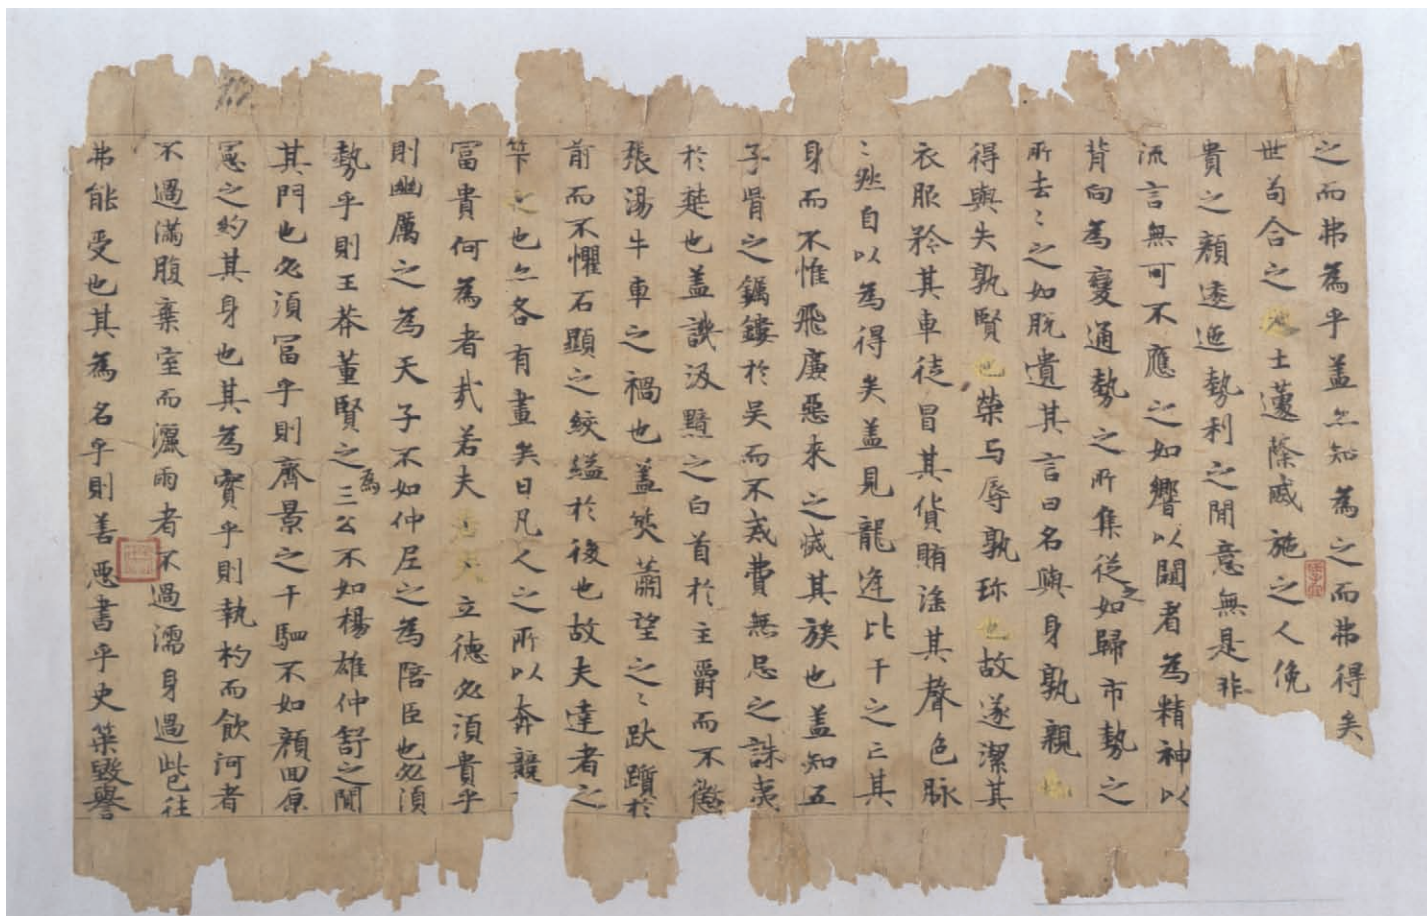 之而弗為乎盖亦知為之而弗得矣
世苟合之士蘧蒢戚施之人俛
貴之顔逶迤勢利之閒意無是非
流言無可不應之如響以闚者為精神以
背向為變通勢之所集從之如歸市勢之
所去〻之如脫遺其言曰名與身孰親也
得與失孰賢也榮与辱孰珎也故遂潔其
衣服矜其車徒冒其貨賄淫其聲色脉
〻然自以為得矣盖見龍逄比干之亡其
身而不惟飛廉惡來之滅其族也盖知五
子胥之钃鏤於吳而不戒費無忌之誅夷
於楚也盖譏汲黯之白首於主爵而不懲
張湯牛車之禍也盖笑蕭望之〻跋躓於
前而不懼石顯之絞縊於後也故夫達者之
筭也亦各有盡矣曰凡人之所以奔競
富貴何為者哉若夫立德必湏貴乎
則幽厲之為天子不如仲尼之為陪臣也必湏
勢乎則王莽董賢之為三公不如楊雄仲舒之閒
其門也必湏冨乎則齊景之千駟不如顔回原
憲之約其身也其為實乎則執杓而飲河者
不過滿腹棄室而灑雨者不過濡身過此已往
弗能受也其為名乎則善惡書乎史策毀譽